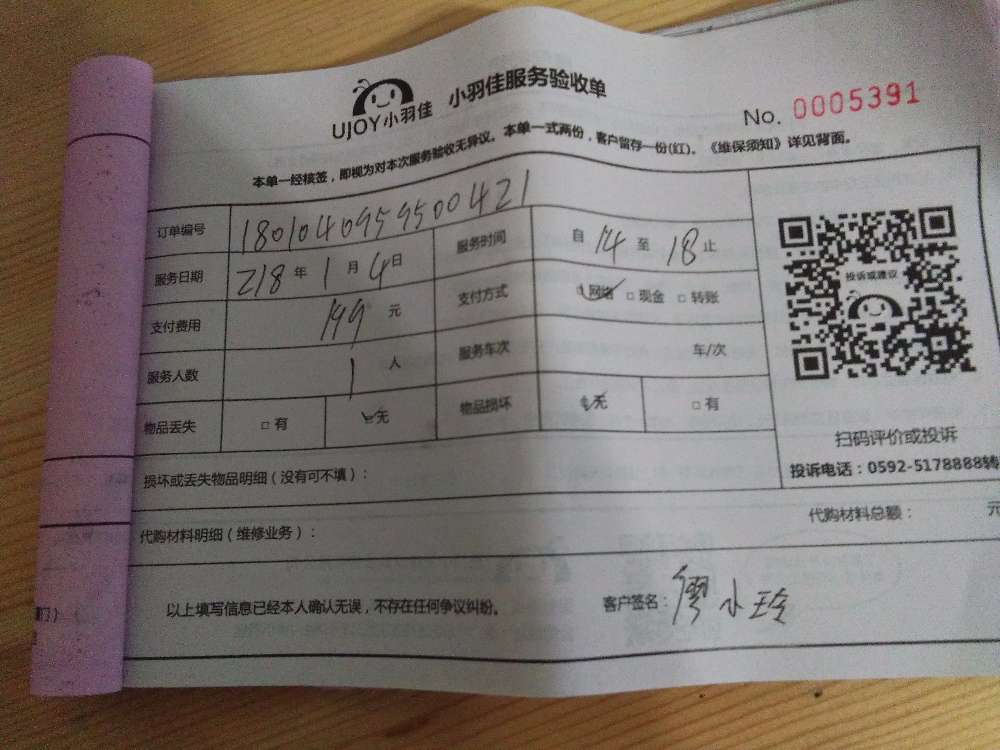 UJOY小羽佳 小羽佳服务验收单
No. 0005391
本单一经核签，即视为对本次服务验收无异议。本单一式两份，客户留存一份(红)。《维保须知》详见背面。
订单编号 1801040959500421
服务日期 218年1月4日 服务时间 自14至18止
支付费用 149元 支付方式 网络 □ 现金 □ 转账
服务人数 1人 服务车次 车/次
物品丢失 □ 有 无 物品损坏 无 □ 有
投诉或建议
扫码评价或投诉
投诉电话：0592-5178888转
损坏或丢失物品明细（没有可不填）：
代购材料明细（维修业务）： 代购材料总额： 元
以上填写信息已经本人确认无误，不存在任何争议纠纷。 客户签名：廖小玲